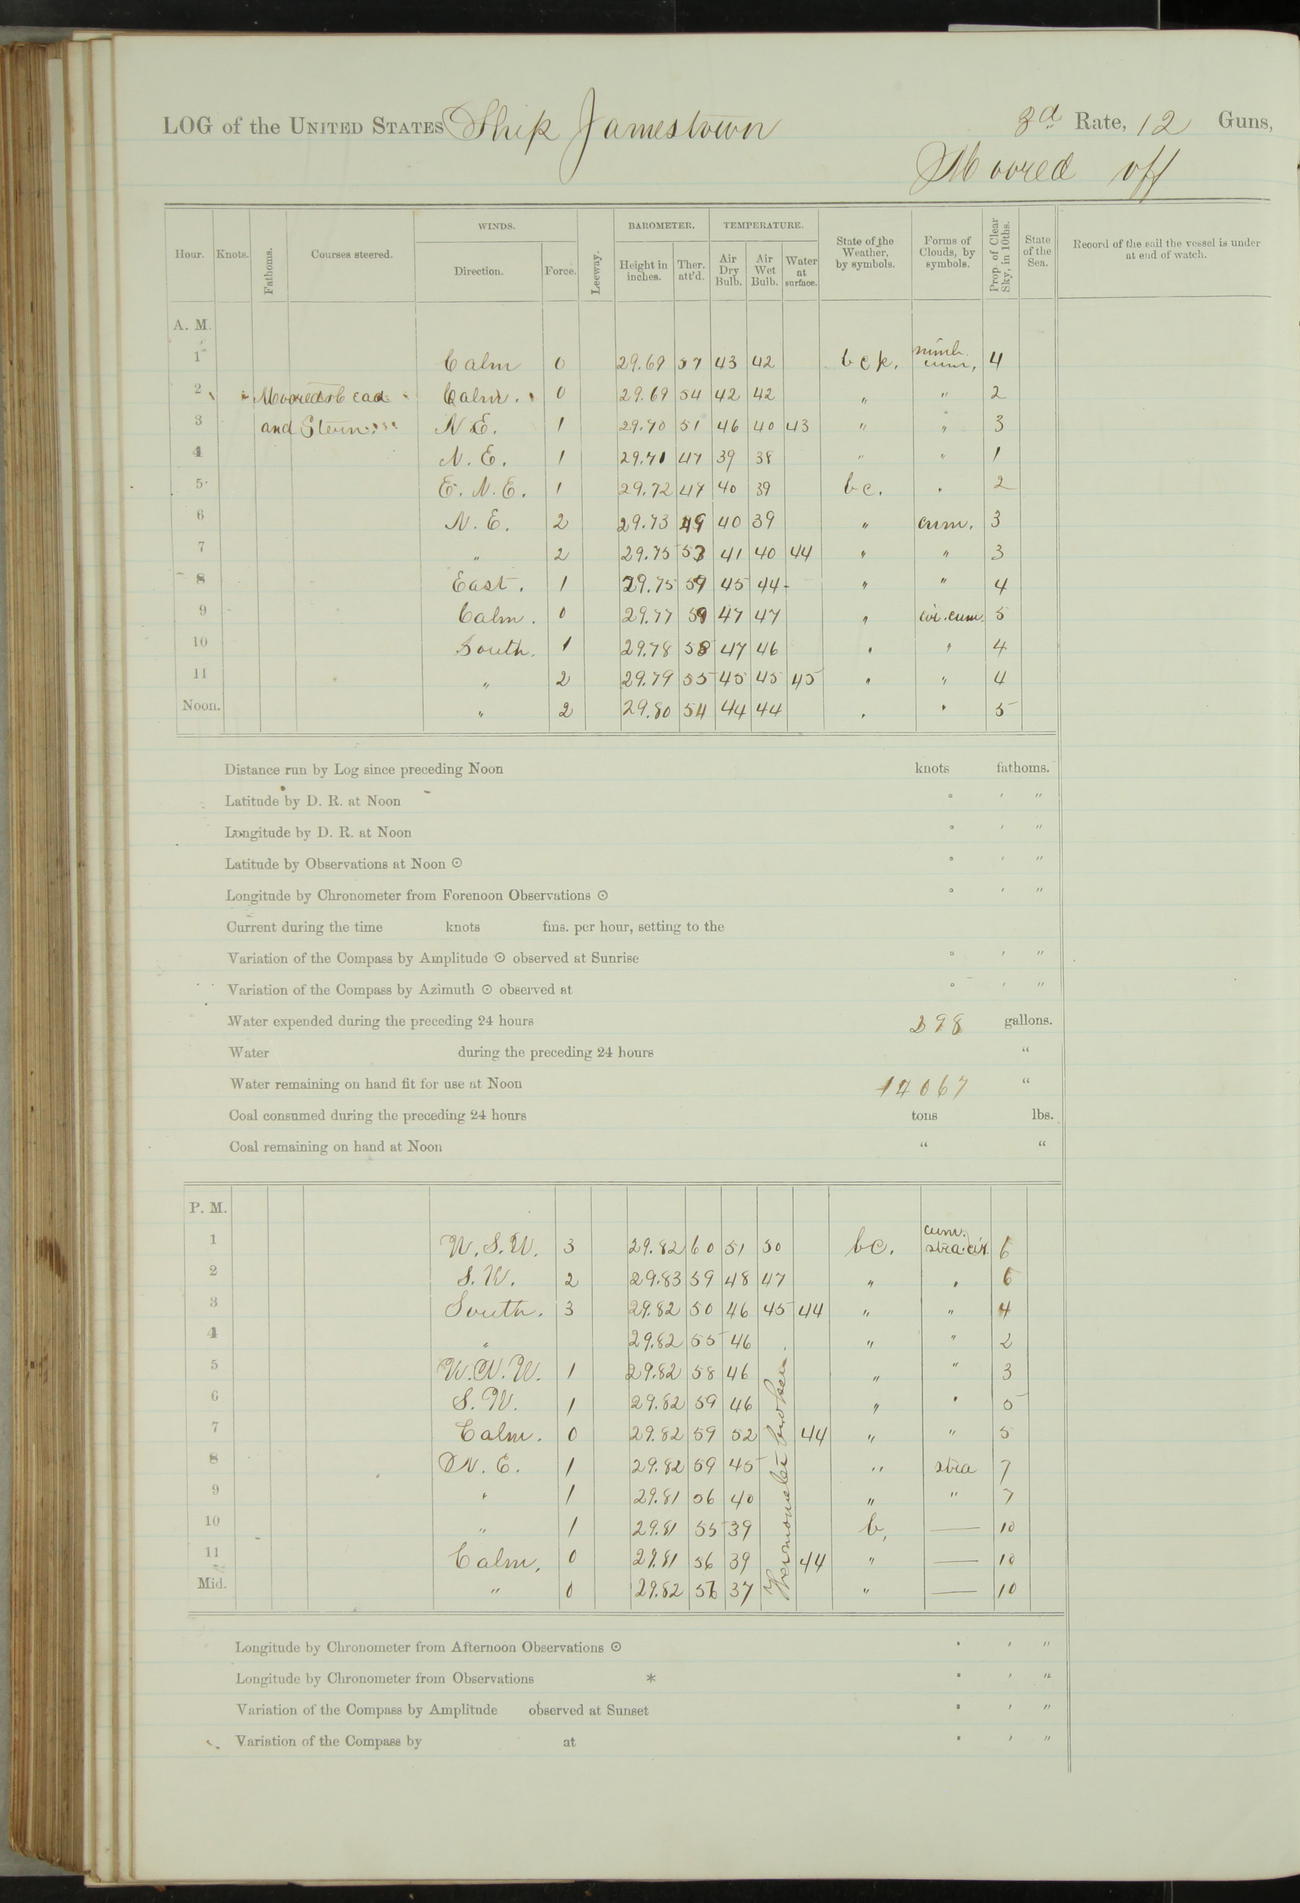 LOG of the UNITED STATES Ship Jamestown 3d Rate, 12 Guns,
Moored off
Hour. Knots. Fathoms. Courses steered. WINDS. Direction. Force. Leeway. BAROMETER. Height in inches. Ther. att'd. TEMPERATURE. Air Dry Bulb. Air Wet Bulb. Water at surface. State of the Weather, by symbols. Forms of Clouds, by symbols. Prop. of Clear Sky, in 10ths. State of the Sea. Record of the sail the vessel is under at end of watch.
A. M.
1 Calm 0 29.69 57 43 42 bck. nimb. cum, 4
2 Moored Head Calm. 0 29.69 54 42 42 " " 2
3 and Stern N.E. 1 29.70 51 46 40 43 " " 3
4 N. E. 1 29.71 47 39 38 " " 1
5 E. N. E. 1 29.72 47 40 39 bc. " 2
6 N. E. 2 29.73 49 40 39 " cum. 3
7 " 2 29.75 53 41 40 44 " " 3
8 East. 1 29.75 59 45 44 " " 4
9 Calm. 0 29.77 59 47 47 " cir.cum. 5
10 South. 1 29.78 58 47 46 " " 4
11 " 2 29.79 55 45 45 45 " " 4
Noon. " 2 29.80 54 44 44 " " 5
Distance run by Log since preceding Noon knots fathoms.
Latitude by D. R. at Noon ° ′ ″
Longitude by D. R. at Noon ° ′ ″
Latitude by Observations at Noon ⊙ ° ′ ″
Longitude by Chronometer from Forenoon Observations ⊙ ° ′ ″
Current during the time knots fms. per hour, setting to the
Variation of the Compass by Amplitude ⊙ observed at Sunrise ° ′ ″
Variation of the Compass by Azimuth ⊙ observed at ° ′ ″
Water expended during the preceding 24 hours 298 gallons.
Water during the preceding 24 hours "
Water remaining on hand fit for use at Noon 14067 "
Coal consumed during the preceding 24 hours tons lbs.
Coal remaining on hand at Noon " "
P. M.
1 W.S.W. 3 29.82 60 51 50 bc. cum. stra.cir. 6
2 S.W. 2 29.83 59 48 47 " " 6
3 South. 3 29.82 50 46 45 44 " " 4
4 " 29.82 55 46 " " 2
5 W.N.W. 1 29.82 58 46 " " 3
6 S.W. 1 29.82 59 46 " " 5
7 Calm. 0 29.82 59 52 44 " " 5
8 N. E. 1 29.82 59 45 " stra 7
9 " 1 29.81 56 40 " " 7
10 " 1 29.81 55 39 b, — 10
11 Calm, 0 29.81 56 39 44 " — 10
Mid. " 0 29.82 56 37 " — 10
Thermometer broken.
Longitude by Chronometer from Afternoon Observations ⊙ ° ′ ″
Longitude by Chronometer from Observations * ° ′ ″
Variation of the Compass by Amplitude observed at Sunset ° ′ ″
Variation of the Compass by at ° ′ ″